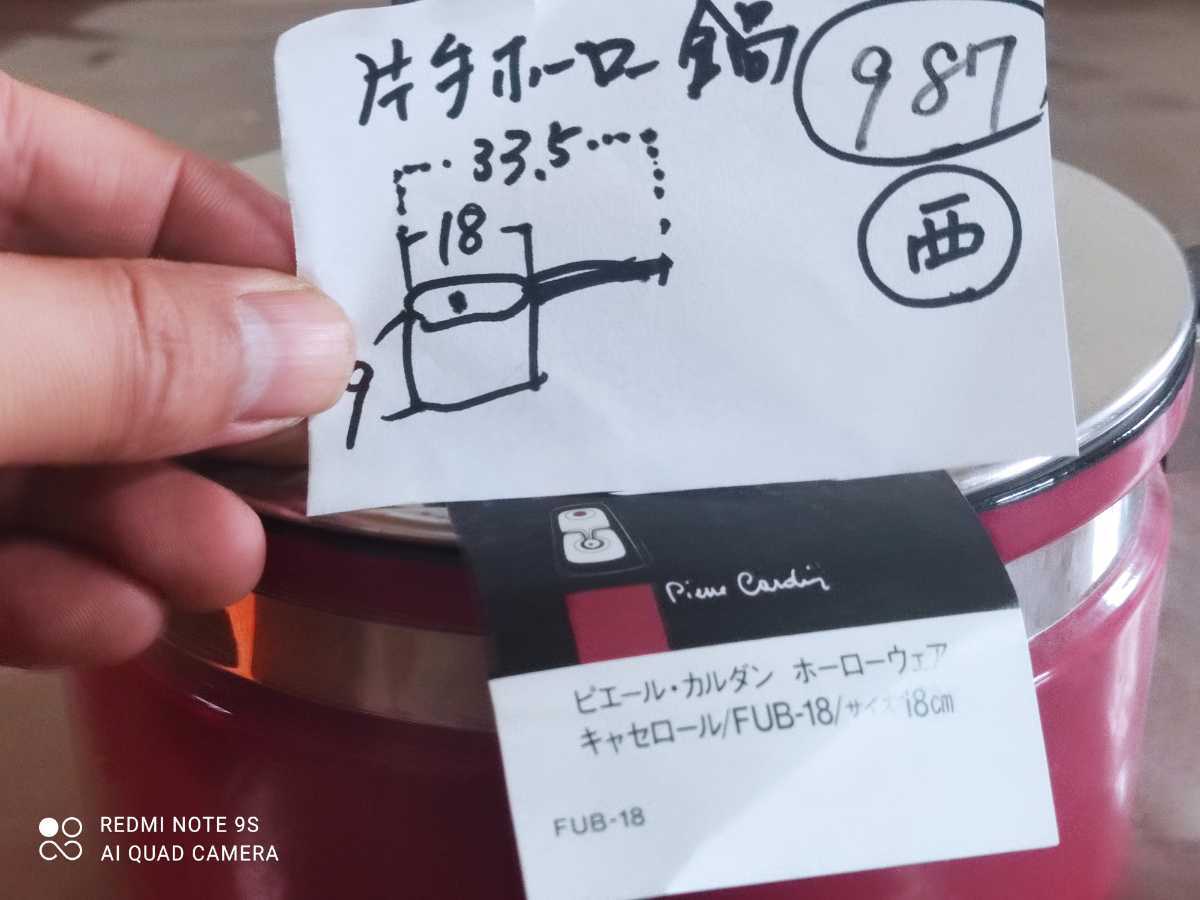 片手ホーロー鍋
987
33.5
18
西
9
Pierre Cardin
ピエール・カルダン ホーローウェア
キャセロール/FUB-18/サイズ 18cm
FUB-18
REDMI NOTE 9S
AI QUAD CAMERA